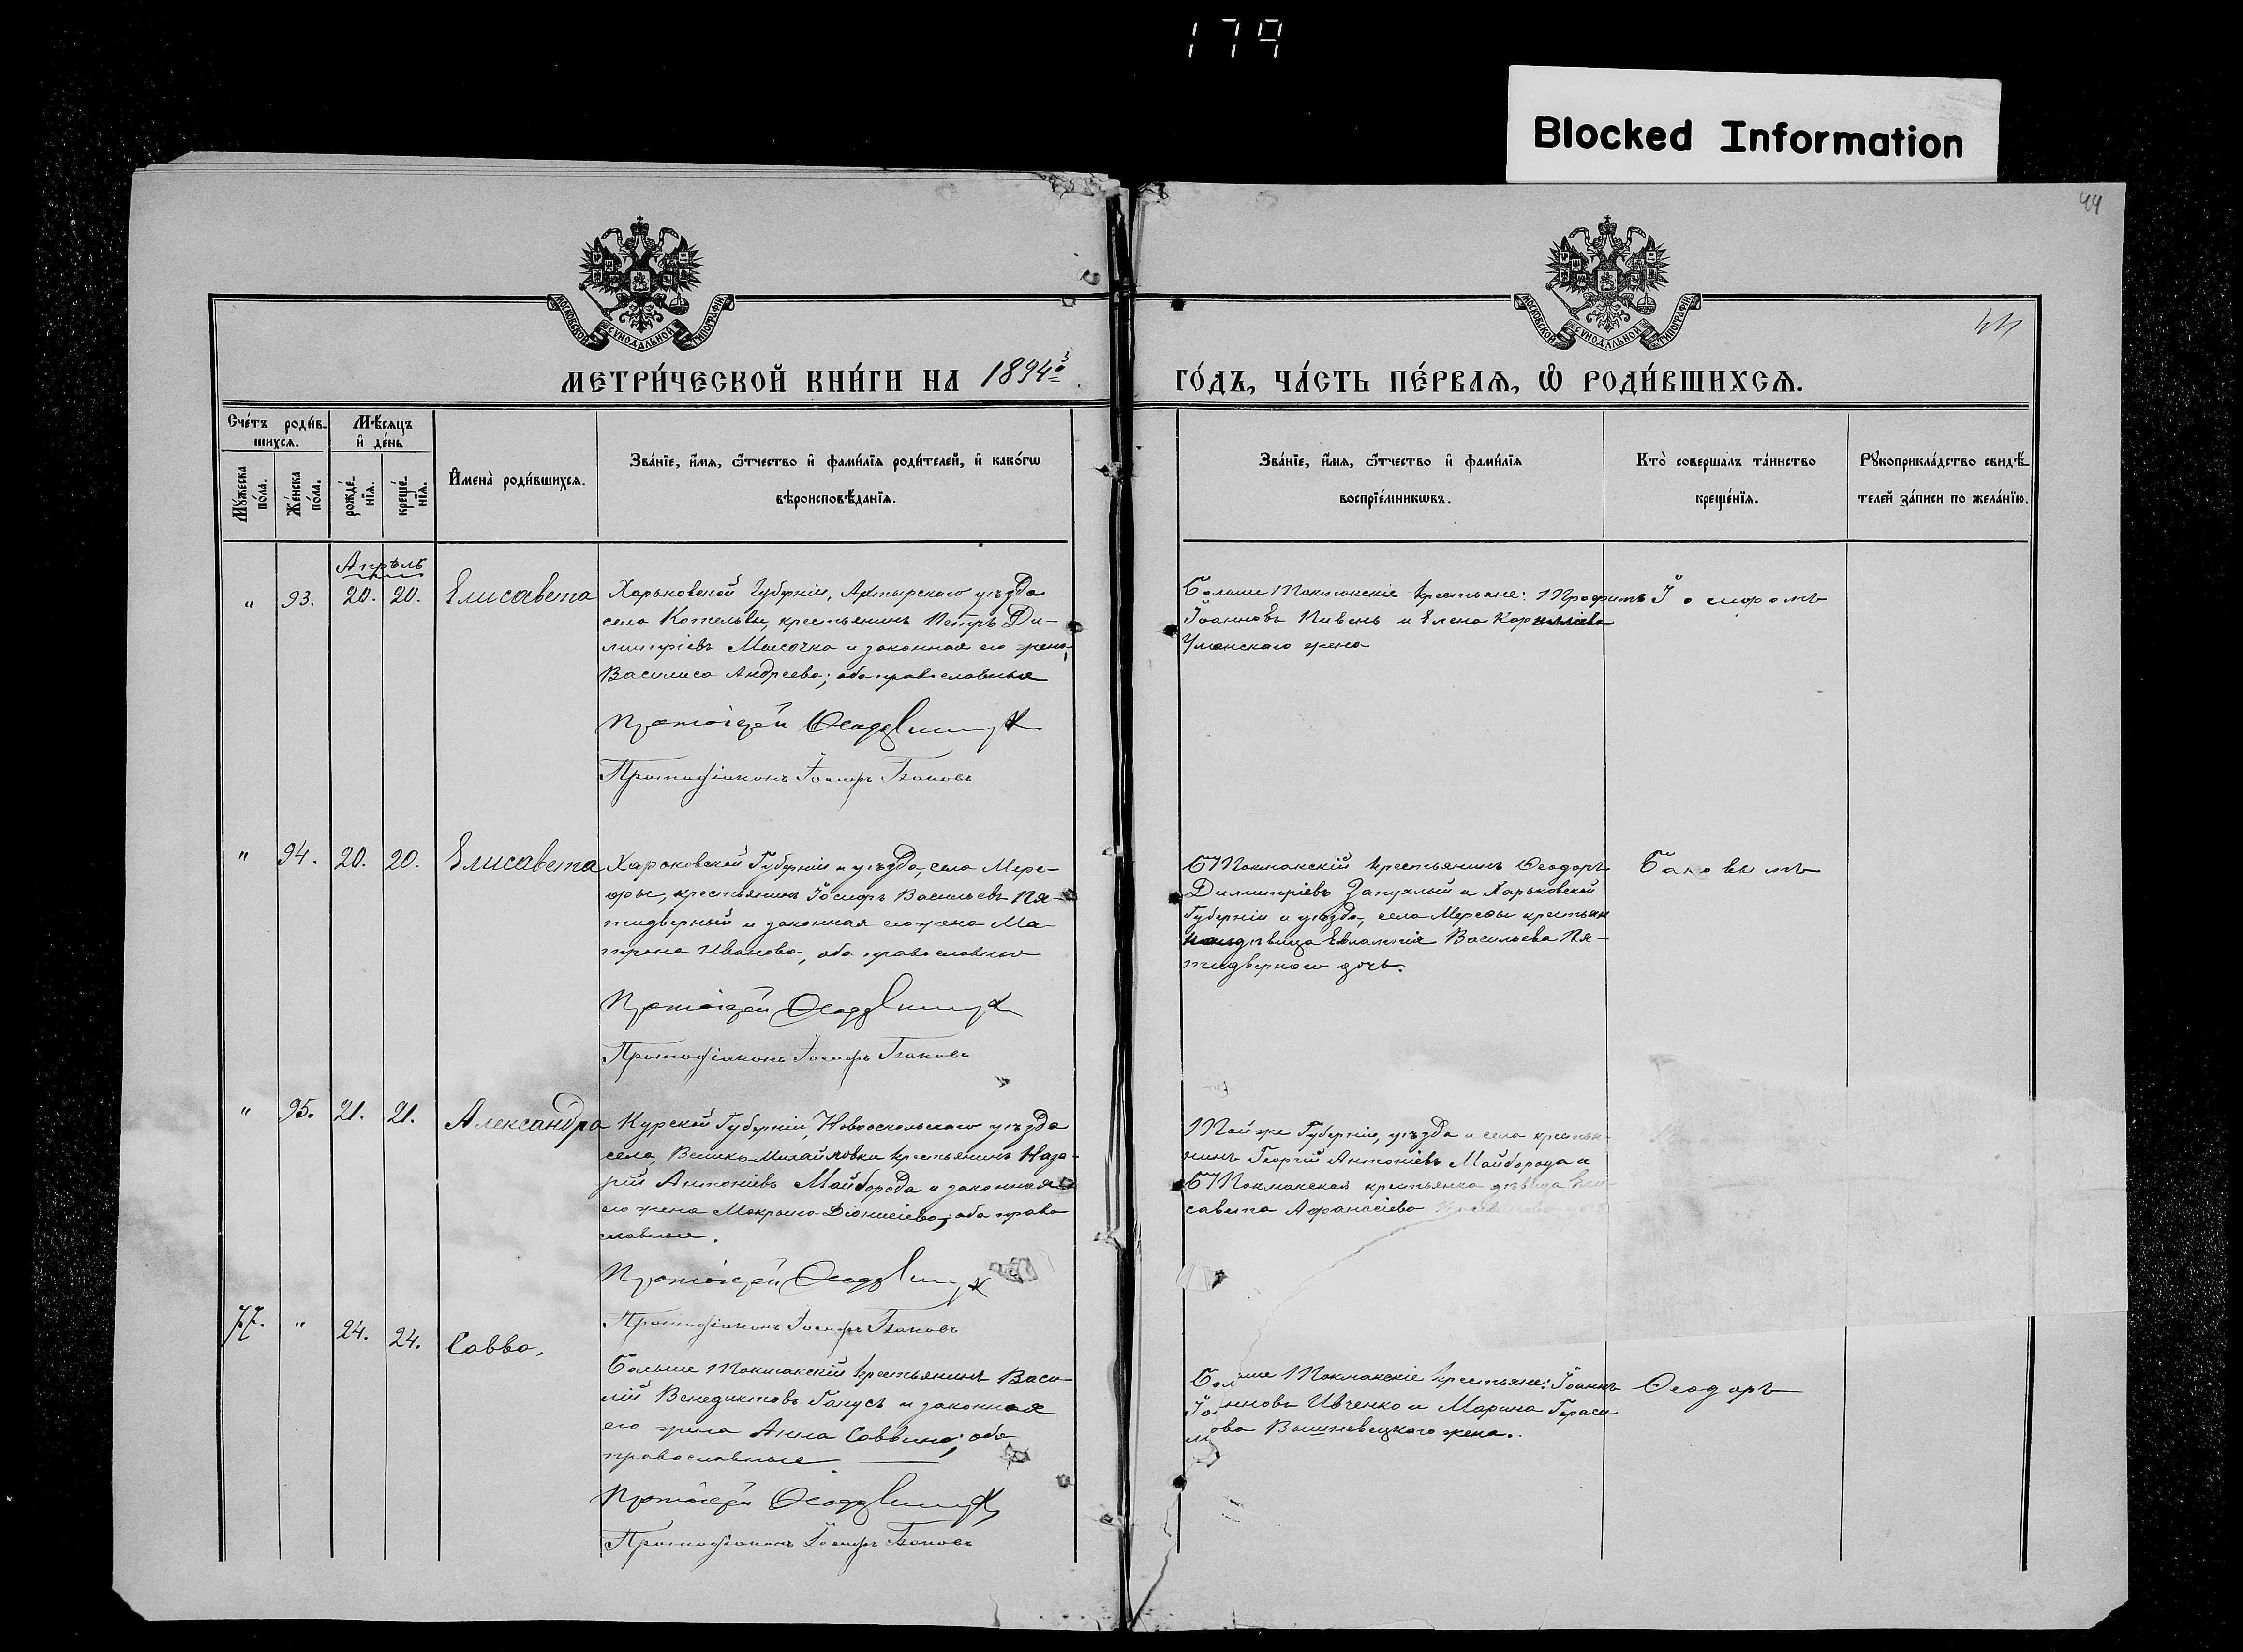 179
Blocked Information
44
МОСКОВСКОЙ СѴНОДАЛЬНОЙ ТИПОГРАФІИ
МОСКОВСКОЙ СѴНОДАЛЬНОЙ ТИПОГРАФІИ
МЕТРИ́ЧЕСКОЙ КНИ́ГИ НА 1894й
ГО́ДЪ, ЧА́СТЬ ПЕ́РВАѦ, Ѡ҆ РОДИ́ВШИХСѦ.
Сче́тъ роди́в-
шихсѧ.
Мѣ́сѧцъ
и҆ де́нь
Мꙋ́жеска
по́ла.
Же́нска
по́ла.
рожде́-
нїѧ.
креще́-
нїѧ.
И҆мена̀ роди́вшихсѧ.
Зва́нїе, и҆́мѧ, ѻ҆́тчество и҆ фами́лїѧ роди́телей, и҆ како́гѡ
вѣроисповѣ́данїѧ.
Зва́нїе, и҆́мѧ, ѻ҆́тчество и҆ фами́лїѧ
воспрїе́мникѡвъ.
Кто̀ совершалъ та́инство
креще́нїѧ.
Рꙋкоприкла́дство свидѣ́-
телей за́писи по жела́нїю.
Апрѣль
" 93. 20. 20. Елисавета
Харьковской Губерніи, Ахтырского уѣзда
села Котельвы, крестьянинъ Петръ Ди-
митріевъ Мысочка и законная его жена,
Василиса Андреева; оба православные
Протоіерей
Протодіаконъ Іосифъ Баковъ
Больше Токмакскіе крестьяне: Трофимъ
Іоанновъ Пивень и Елена Корниліева
Уманского жена
Іосифомъ
" 94. 20. 20. Елисавета
Харьковской Губерніи и уѣзда, села Мере-
фы, крестьянинъ Іосифъ Васильевъ Пя-
тидверный и законная его жена Ма-
трона Иванова, оба православные
Протоіерей
Протодіаконъ Іосифъ Баковъ
БТокмакскій крестьянинъ Ѳеодоръ
Димитріевъ Запухлый и Харьковской
Губерніи и уѣзда, села Мерефы крестьян
дѣвица Евлампія Васильева Пя-
тидверного дочь.
Баковымъ
" 95. 21. 21. Александра
Курской Губерніи, Новооскольского уѣзда
села, Велико-Михайловки крестьянинъ Наза-
рій Антоніевъ Майборода и законная
его жена Макрина Діонисіева, оба право
славные.
Протоіерей
Протодіаконъ Іосифъ Баковъ
Той же Губерніи, уѣзда и села крестья-
нинъ Георгій Антоніевъ Майборода и
БТокмакская крестьянка дѣвица Ели-
савета Афанасіева
77. " 24. 24. Савва,
Больше Токмакскій крестьянинъ Васи
лій Венедиктовъ Ганусъ и законная
его жена Анна Саввина; оба
православные
Протоіерей
Протодіаконъ Іосифъ Баковъ
Больше Токмакскіе крестьяне: Іоаннъ
Іоанновъ Ивченко и Марина Гераси
мова Вышневецкого жена.
Ѳеодоръ